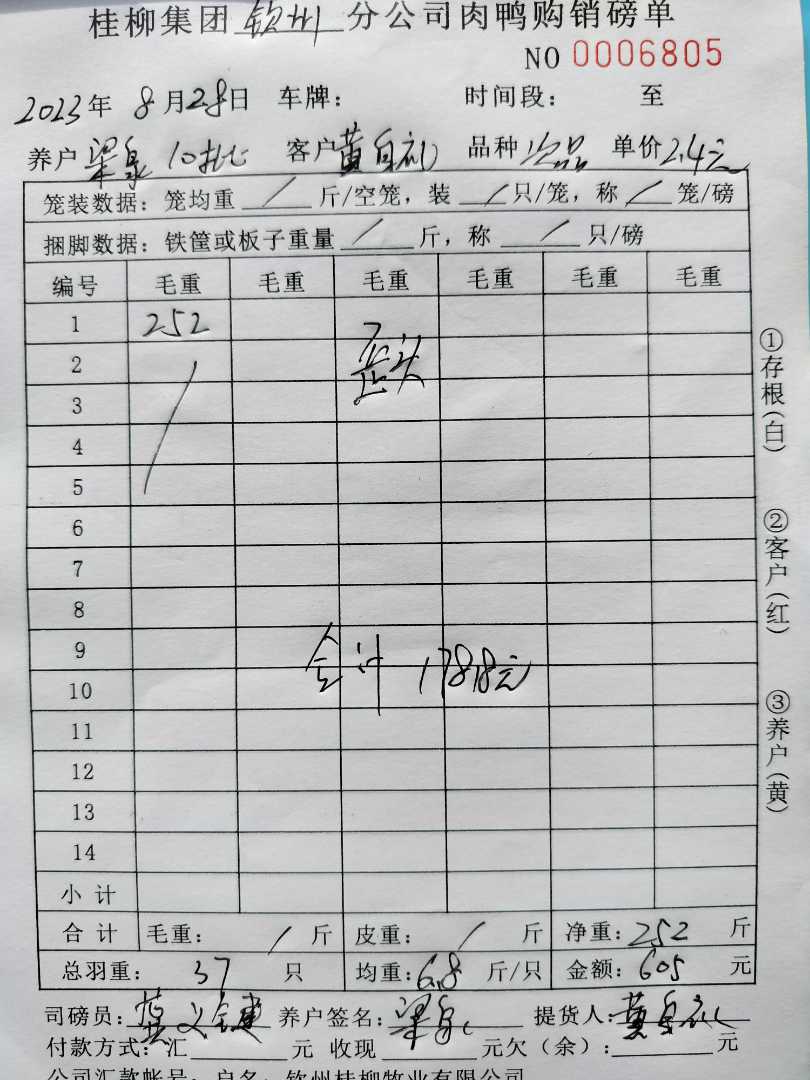 桂柳集团 钦州 分公司肉鸭购销磅单
NO 0006805
2023年 8月28日 车牌: 时间段: 至
养户 梁泉 10批 客户 黄自礼 品种 次品 单价 2.4元
笼装数据: 笼均重 / 斤/空笼, 装 / 只/笼, 称 / 笼/磅
捆脚数据: 铁筐或板子重量 / 斤, 称 / 只/磅
编号 毛重 毛重 毛重 毛重 毛重 毛重
1 252
2 歪头
3
4
5
6
7
8
9
10 合计 1781.8元
11
12
13
14
小 计
合 计 毛重: / 斤 皮重: / 斤 净重: 252 斤
总羽重: 37 只 均重: 6.8 斤/只 金额: 605 元
司磅员: 养户签名: 梁泉 提货人: 黄自礼
付款方式: 汇 元 收现 元欠(余): 元
公司汇款帐号: 户名: 钦州桂柳牧业有限公司
①存根(白)
②客户(红)
③养户(黄)